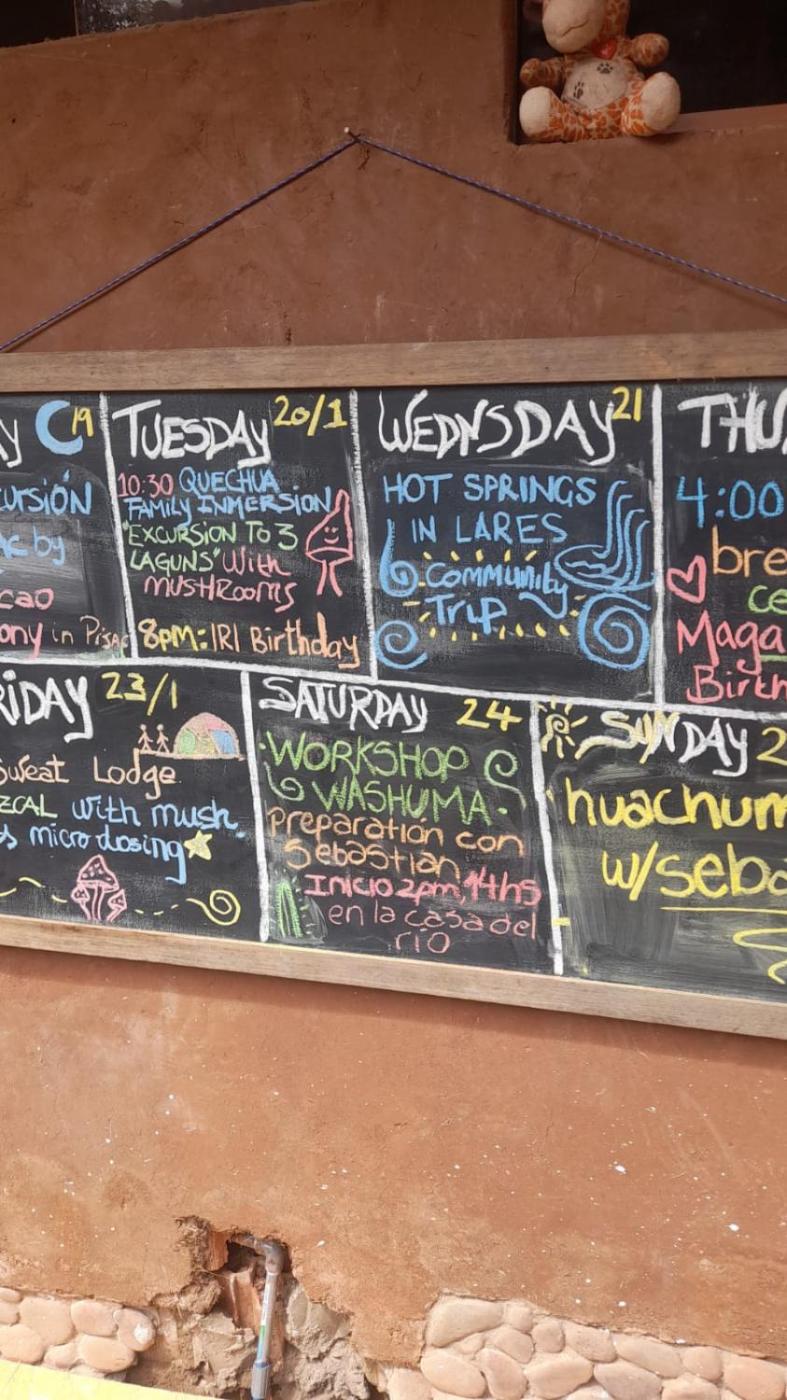 Y 19
CURSIÓN
AC by
cao
ony in Pisac
TUESDAY 20/1
10:30 QUECHUA
FAMILY INMERSION
"EXCURSION TO 3
LAGUNS" With
MUSHROOMS
8pm: IRI Birthday
WEDNSDAY 21
HOT SPRINGS
IN LARES
Community
Trip
THU
4:00
bre
ce
Maga
Birth
RIDAY 23/1
Sweat Lodge
ZCAL with mush.
s microdosing
SATURDAY 24
WORKSHOP
WASHUMA.
Preparation con
Sebastian
Inicio 2pm, 14hs
en la casa del
rio
SUNDAY 2
huachum
w/seba